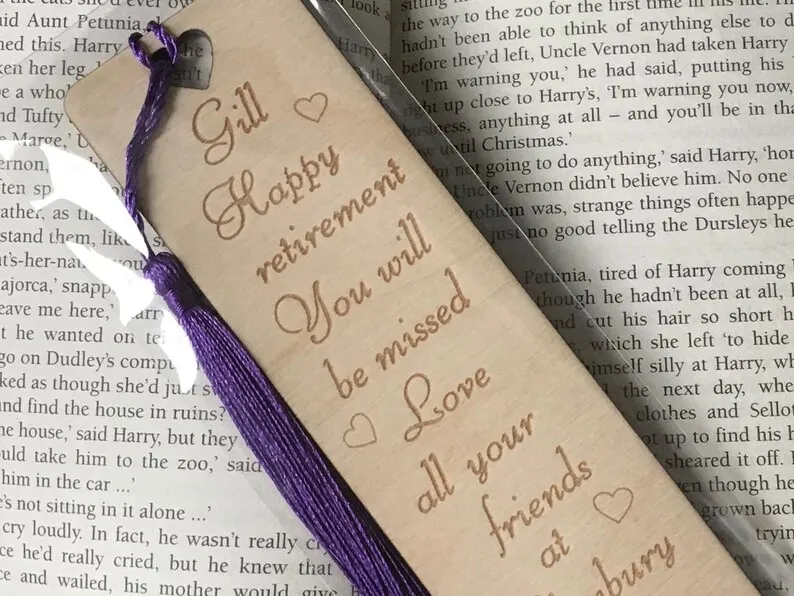 Gill
Happy
retirement
You will
be missed
Love
all your
friends
at
cats she'd ever
Aunt Petunia, look
this. Harry Harry
ken her leg, tha
be a who
nd Tufty
Marge,' U
ernon,
ten
ather, as
stand them, like
t's-her-na you
ajorca,' snapp
eave me here,'
t he wanted on
go on Dudley's comp
ked as though she'd just s
and find the house in ruins?
he house,' said Harry, but they
ould take him to the zoo,' said
him in the car ...'
's not sitting in it alone ...'
cry loudly. In fact, he wasn't really
ce he'd really cried, but he knew that
e and wailed, his mother would give
the way to the zoo for the first time in his
hadn't been able to think of anything else to d
before they'd left, Uncle Vernon had taken Harry
'I'm warning you,' he had said, putting his
right up close to Harry's, 'I'm warning you now,
business, anything at all – and you'll be in tha
until Christmas.'
not going to do anything,' said Harry, 'hon
Uncle Vernon didn't believe him. No one
problem was, strange things often happe
just no good telling the Dursleys he
Petunia, tired of Harry coming
though he hadn't been at all,
nd cut his hair so short h
which she left 'to hide
himself silly at Harry, wh
the next day, whe
clothes and Sellot
ot up to find his h
sheared it off.
en though he
grown back
tryin